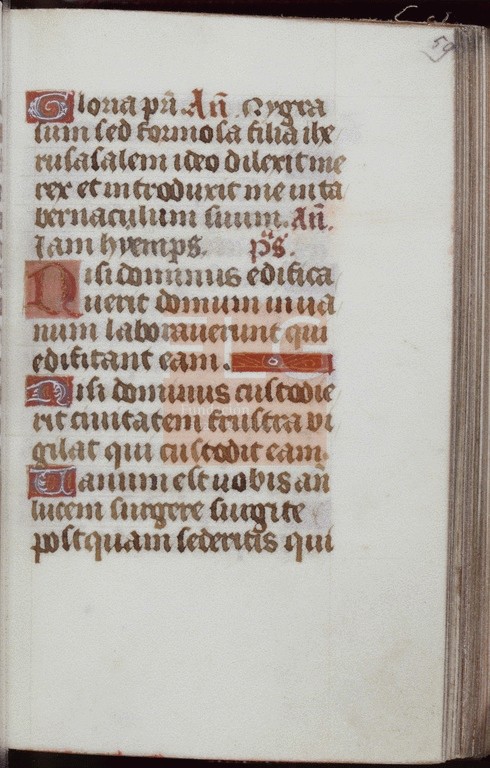 59
Gloria pr̄i. An̄. Nygra
sum sed formosa filia ihe
rusasalem ideo dilexit me
rex et introduxit me in ta
bernaculum suum. An̄.
Jam hyemps. ps.
Nisi dominus edifica
uerit domum in ua
num laborauerunt qui
edificant eam.
Nisi dominus custodie
rit ciuitatem frustra vi
gilat qui custodit eam.
Uanum est uobis an̄
lucem surgere surgite
postquam sederitis qui